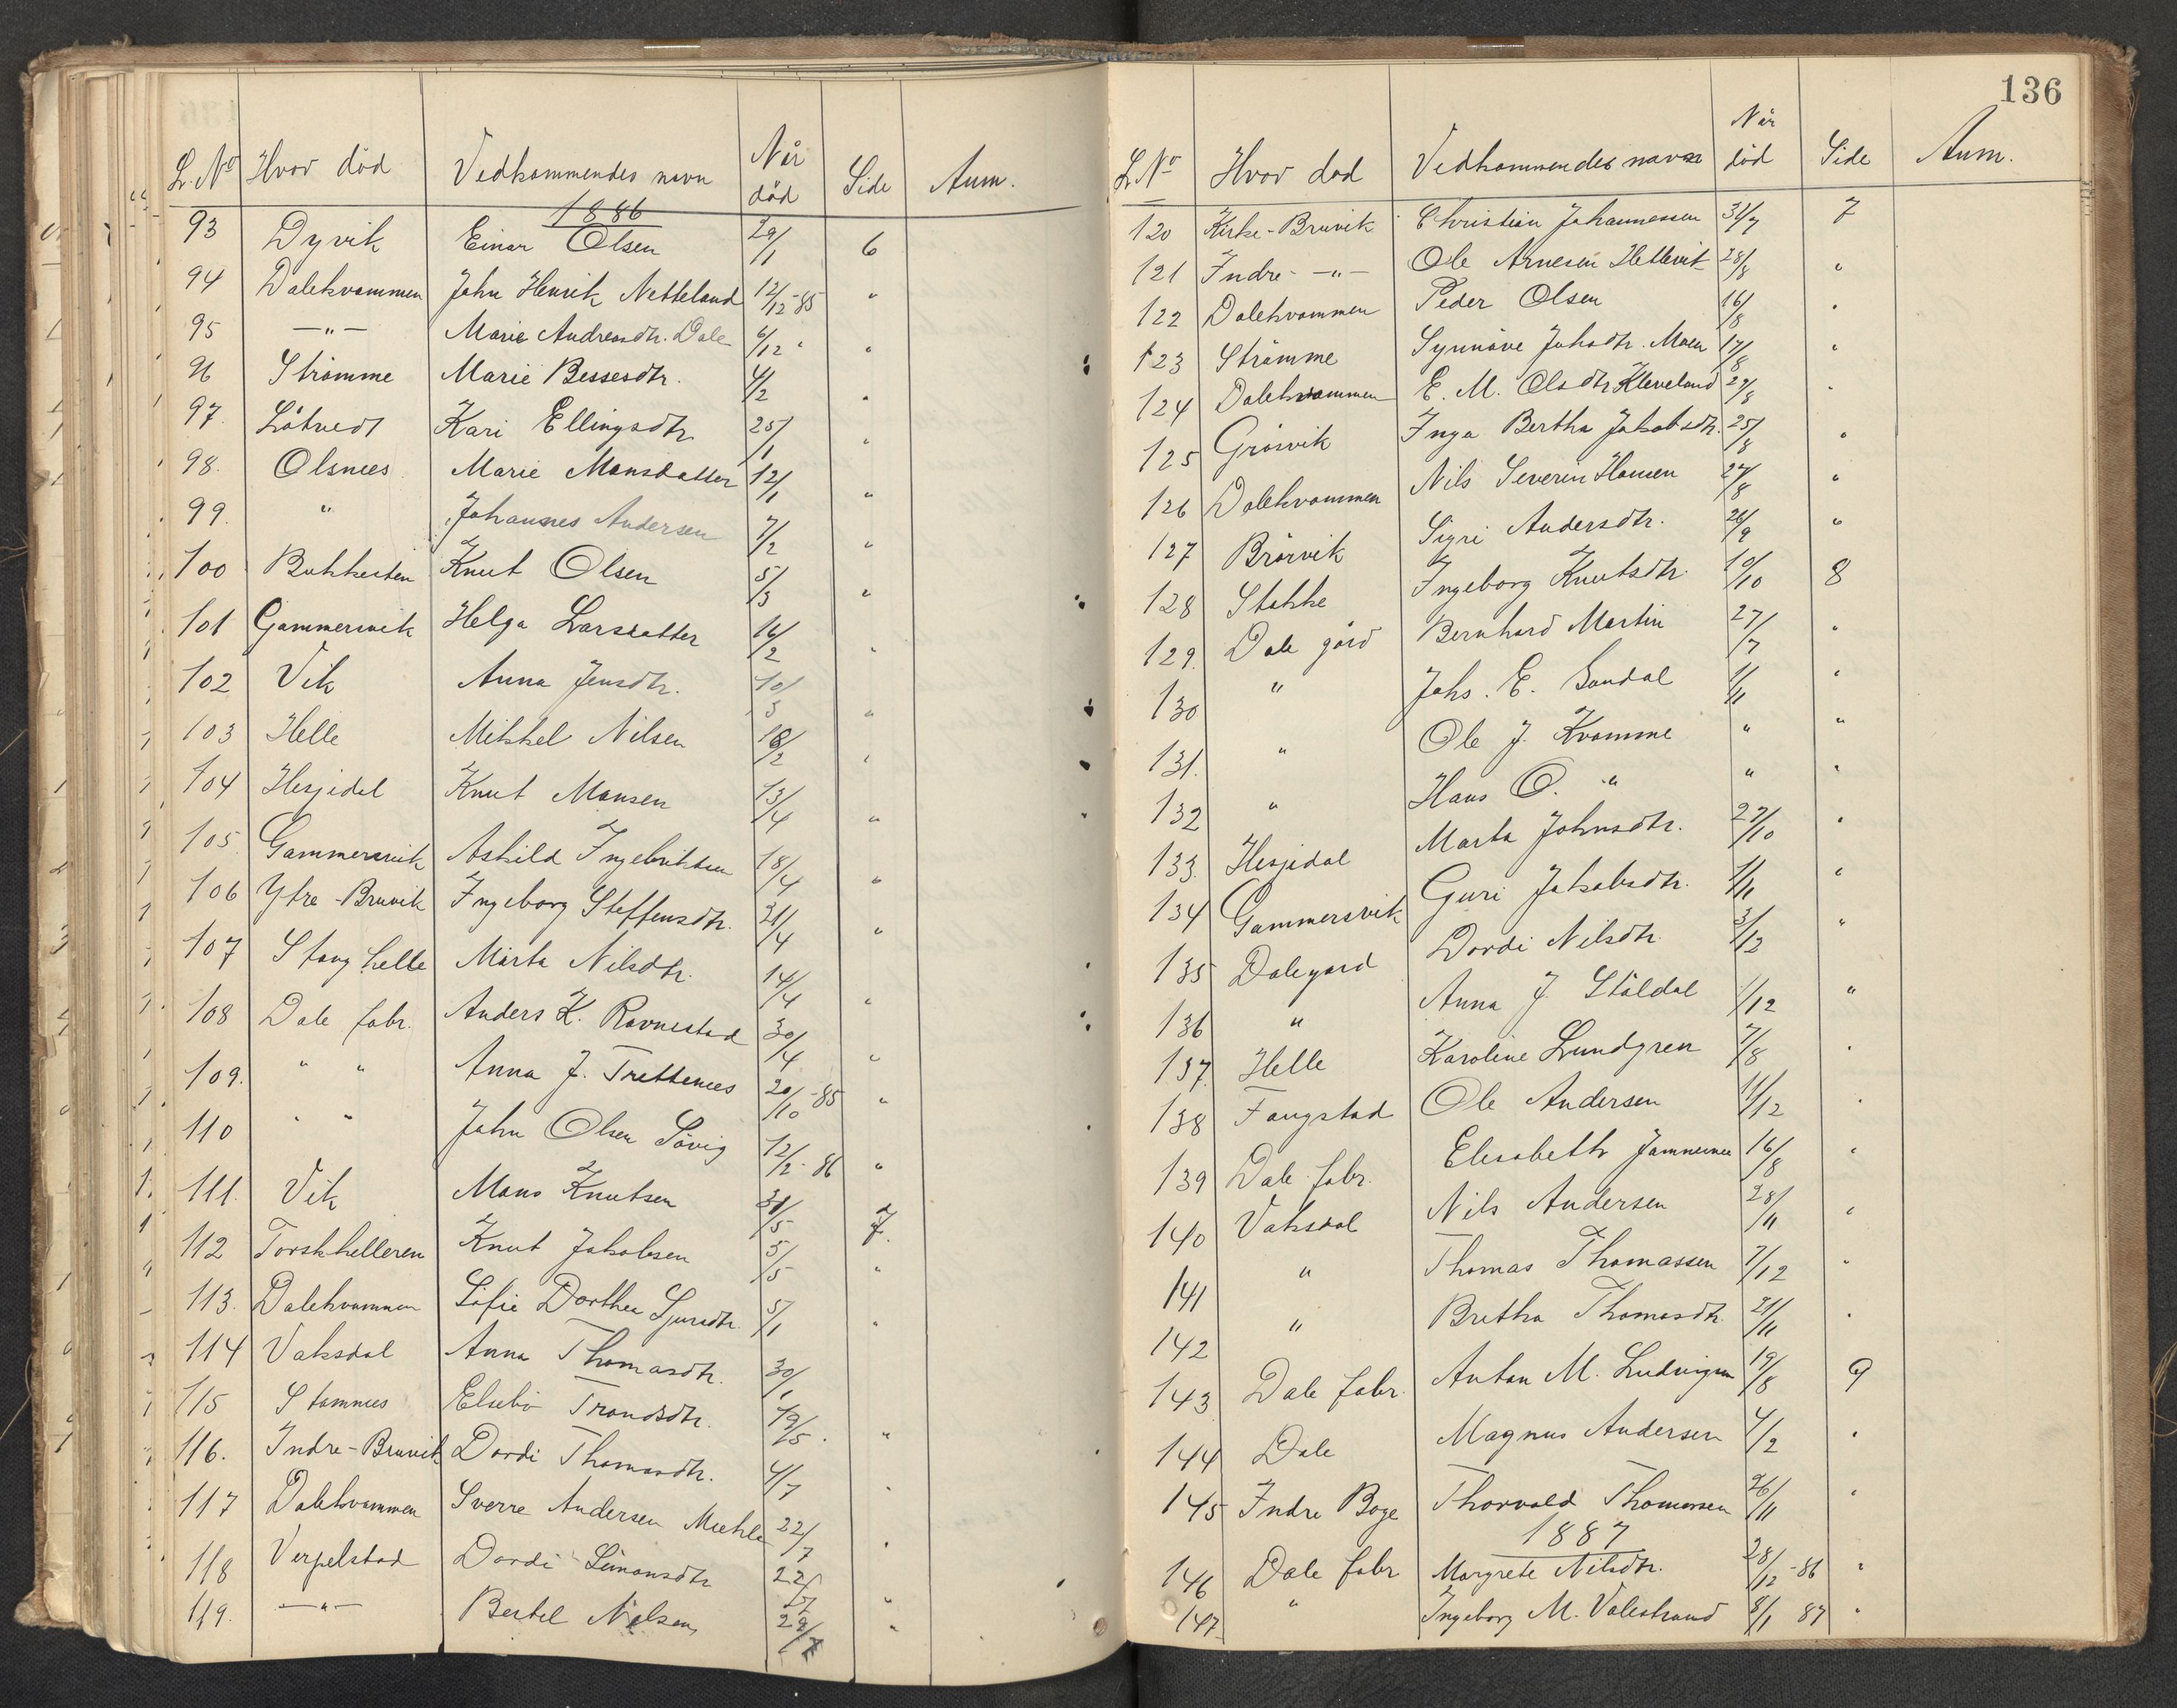 L. No Hvor död Vedkommendes navn Når död Side Anm.
1886
93 Dyvik Einar Olsen 29/1 6
94 Dalekvammen John Henrik Netteland 12/12-85 "
95 —"— Marie Andreasdtr. Dale 6/12 " "
96 Strömme Marie Bessesdtr. 4/2 "
97 Låtvedt Kari Ellingsdtr. 25/1 "
98. Olsnees Marie Monsdatter 12/1 "
99. " Johannes Andersen 7/2 "
100 Bukkesten Knut Olsen 5/3 "
101 Gammersvik Helga Larsdatter 16/2 "
102 Vik Anna Jensdtr. 10/3 "
103 Helle Mikkel Nilsen 18/2 "
104 Hesjedal Knut Monsen 13/4 "
105 Gammersvik Askild Ingebriktsen 18/4 "
106 Ytre-Bruvik Ingeborg Steffensdtr. 21/4 "
107 Stanghelle Marta Nilsdtr. 14/4 "
108 Dale fabr. Anders K. Ravnestad 30/4 "
109. " " Anna J. Trettenees 20/10-85 "
110 " " John Olsen Sövig 12/2-86 "
111. Vik Mons Knutsen 31/5 7.
112 Torskhelleren Knut Jakobsen 5/5 "
113. Dalekvammen Sofie Dorthea Sjursdtr. 5/1 "
114 Vaksdal Anna Thomasdtr. 30/1
115 Stamnes Elsebö Trondsdtr. 19/5. "
116. Indre-Bruvik Dordi Thomasdtr. 4/7 "
117 Dalekvammen Sverre Andersen 22/7 "
118 Verpelstad Dordi Simonsdtr 22/7 "
119. —"— Bertel Nilsen 29/7 "
136
L No Hvor död Vedkommendes navn Når död Side Anm.
120 Kirke-Bruvik Christian Johannessen 31/7 7
121 Indre- —"— Ole Arnesen Hellevik 28/8 "
122 Dalekvammen Peder Olsen 16/8 "
123 Strömme Synnöve Johsdtr. Moen 17/8 "
124 Dalekvammen E. M. Olsdtr Kleveland 29/8 "
125 Grösvik Inga Bertha Jakobsdtr. 25/8 "
126 Dalekvammen Nils Severin Hansen 27/8 "
127 Brörvik Sigri Andersdtr. 26/9 "
128 Stokke Ingeborg Knutsdtr. 10/10 8
129. Dale gård Bernhard Martin 27/7 "
130 " Johs. E. Sandal 1/11 "
131. " Ole J. Kvamme " "
132 " Hans O. " " "
133. Hesjedal Marta Johnsdtr. 27/10 "
134 Gammersvik Guri Jakobsdtr. 1/11 "
135 Dalegard Dordi Nilsdtr. 3/12 "
136 " Anna J. Ståldal 1/12 "
137. Helle Karoline Lundgren 7/8 "
138 Fangstad Ole Andersen 11/12 "
139 Dale fabr. Elisabeth 16/8 "
140 Vaksdal Nils Andersen 28/11 "
141 " Thomas Thomassen 7/12 "
142 " Bretha Thomasdtr. 21/11 "
143 Dale fabr. Anton M. Ludvigsen 19/8 9
144 Dale Magnus Andersen 4/2 "
145 Indre Boge Thorvald Thomassen 26/11 "
1887
146 Dale fabr Margrete Nilsdtr. 28/12-86 "
147 " Ingeborg M. Valestrand 8/1 87 "